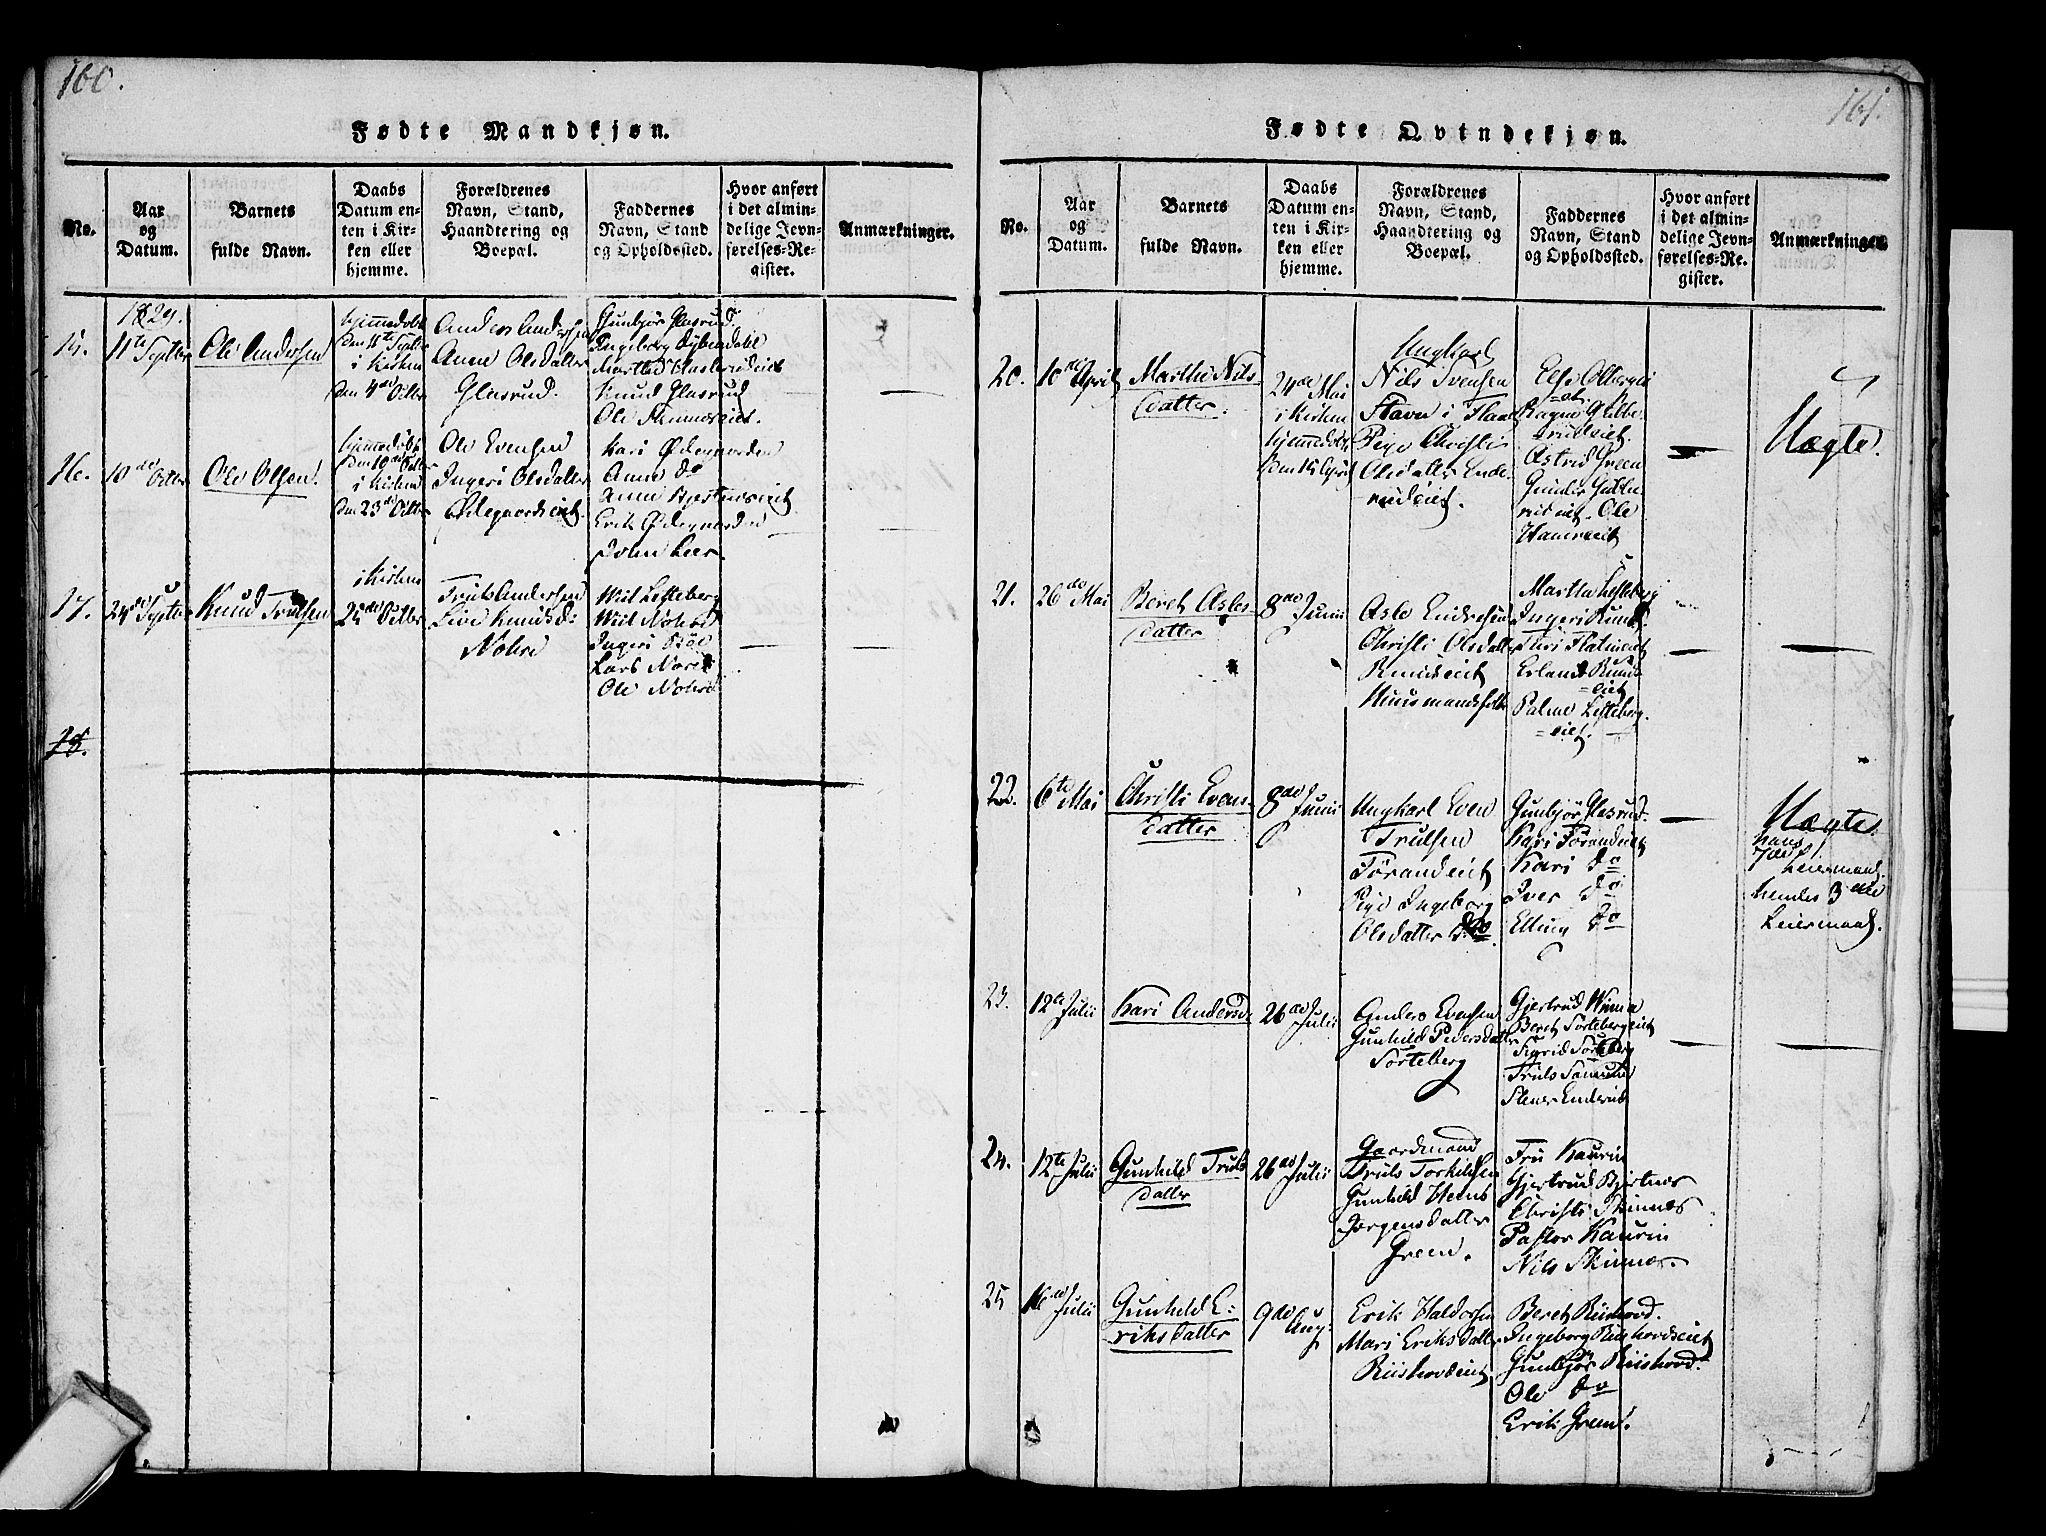 160.
Fødte Mandkjøn.
No.
Aar
og
Datum.
Barnets
fulde Navn.
Daabs
Datum en-
ten i Kir-
ken eller
hjemme.
Forældrenes
Navn, Stand,
Haandtering og
Boepæl.
Faddernes
Navn, Stand
og Opholdssted.
Hvor anført
i det almin-
delige Jevn-
førelses-Re-
gister.
Anmærkninger.
1829.
15.
11te Septbr
Ole Andersen
hjemmedøbt
den 11te Septbr
i Kirken
den 4de Octbr
Anders Andersen
Anne Olsdatter
Glasrud.
Gunbjør Glasrud
Ingeborg
Knud Glasrud
Ole
16.
10de Octbr
Ole Olsen.
hjemmedøbt
den 10de Octbr
i Kirken
den 23de Octbr
Ole Evensen
Ingeri Olsdatter
Ødegaardseiet.
Kari Ødegaarden
Anne do
Anne
Erik Ødegaarden
John Lier.
17.
24de Septbr
Knud Trulsen
i Kirken
25de Octbr
Truls Andersen
Live Knudsd:
Nohre
Ingeri Bøe
Lars Nore
Ole Nohre
18.
161.
Fødte Qvindekjøn.
No.
Aar
og
Datum.
Barnets
fulde Navn.
Daabs
Datum en-
ten i Kir-
ken eller
hjemme.
Forældrenes
Navn, Stand,
Haandtering og
Boepæl.
Faddernes
Navn, Stand
og Opholdssted.
Hvor anført
i det almin-
delige Jevn-
førelses-Re-
gister.
Anmærkninger.
20.
10de April
Marthe Nils-
datter.
24de Mai
i Kirken
hjemmedøbt
den April
Ungkarl
Nils Svensen
Stavn i Flaae
Pige Christi
Olsdatter Ende-
rudeiet.
Ragne Gulbe-
rudeiet.
Astrid Green
Gunder Gulbe-
rudeiet. Ole
Uægte.
21.
26de Mai
Beret Asles-
datter
8de Junii
Asle Endresen
Christi Olsdatter
Ruudseiet
Huusmandsfolk
Marthe Lesteberg
Ingeri Ruud
Erland Ruud-
=eiet
Palme Lesteberg-
=eiet.
22.
6te Mai
Christi Evens-
datter
8de Junii
Ungkarl Even
Trulsen
Tørandeiet
Pige Ingeborg
Olsdatter do.
Gunbjør Glasrud
Kari Tørandeiet
Kari do
Iver do
Elling do
Uægte.
hans
Leiermaal.
hendes 3die
Leiermaal.
23.
12te Julii
Kari Andersd:
26de Julii
Anders Evensen
Gunhild Pedersdatter
Sørteberg
Gjertrud Winna
Beret Sørtebergeiet
Sigrid Sørteberg
Truls
Stener Enderud
24.
12te Julii
Gunhild Truls
datter
26de Julii
Gaardmand
Truls Torkildsen
Gunhild
Jørgensdatter
Green.
Fru Kaurin
Gjertrud Bjertnæs
Christi Skinnæs
Pastor Kaurin
Nils Skinnæs.
25
16de Julii
Gunhild E-
riksdatter
9de Aug:
Erik Haldorsen
Mari Eriksdatter
Riishovdeiet
Beret Riishovd.
Ingeborg Riishovdseiet
Gunbjør Riishovd.
Ole do
Erik Green.